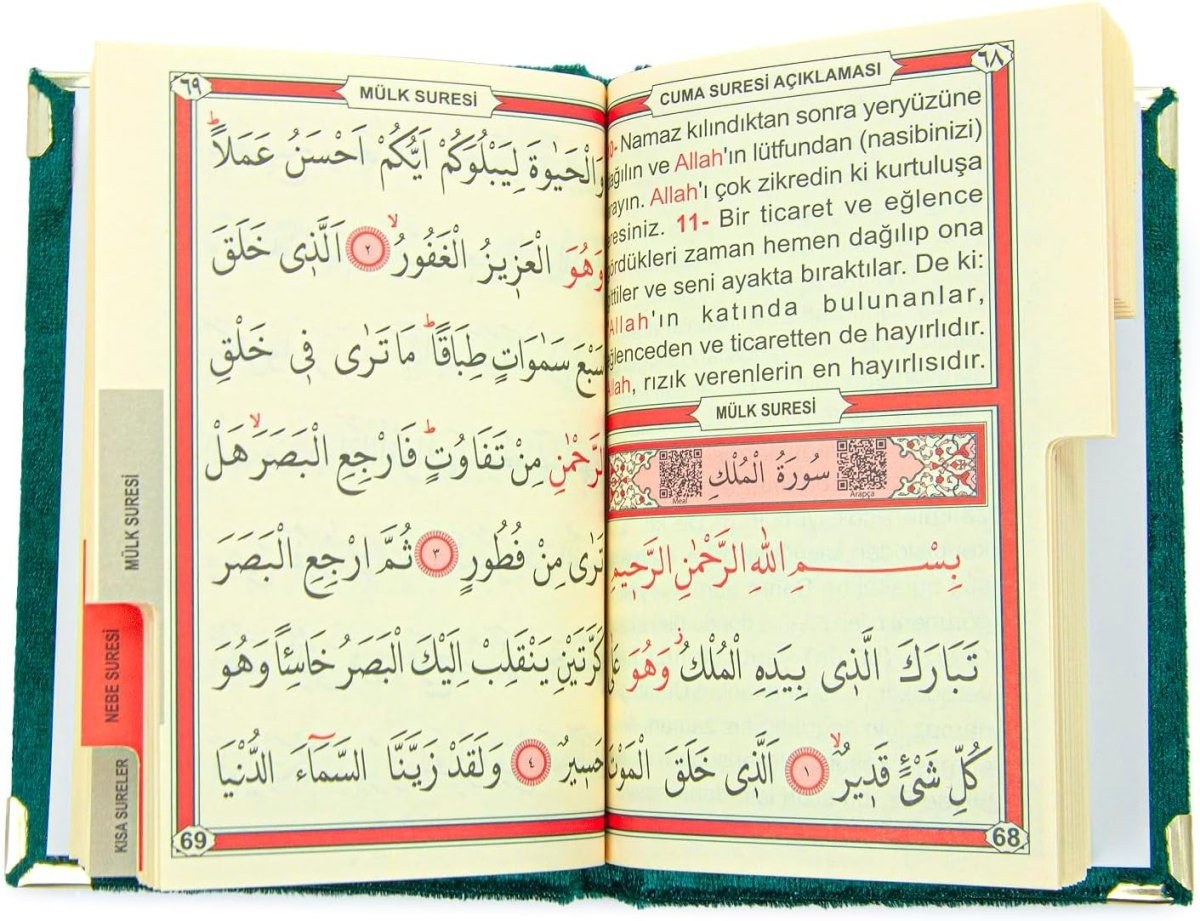 ٦٨
CUMA SURESİ AÇIKLAMASI
0- Namaz kılındıktan sonra yeryüzüne
ağılın ve Allah'ın lütfundan (nasibinizi)
rayın. Allah'ı çok zikredin ki kurtuluşa
resiniz. 11- Bir ticaret ve eğlence
ördükleri zaman hemen dağılıp ona
ittiler ve seni ayakta bıraktılar. De ki:
Allah'ın katında bulunanlar,
ğlenceden ve ticaretten de hayırlıdır.
Allah, rızık verenlerin en hayırlısıdır.
MÜLK SURESİ
سُورَةُ الْمُلْكِ
Meal
Arapça
بِسْمِ اللّٰهِ الرَّحْمٰنِ الرَّحٖيمِ
تَبَارَكَ الَّذٖى بِيَدِهِ الْمُلْكُ ؗ وَهُوَ عَلٰى
كُلِّ شَیْءٍ قَدٖيرٌ ۙ ﴿١﴾ اَلَّذٖى خَلَقَ الْمَوْتَ
68
٦٩
MÜLK SURESİ
وَالْحَيٰوةَ لِيَبْلُوَكُمْ اَيُّكُمْ اَحْسَنُ عَمَلًا ؕ
وَهُوَ الْعَزٖيزُ الْغَفُورُ ۙ ﴿٢﴾ اَلَّذٖى خَلَقَ
سَبْعَ سَمٰوَاتٍ طِبَاقًا ؕ مَا تَرٰى فٖى خَلْقِ
الرَّحْمٰنِ مِنْ تَفَاوُتٍ ؕ فَارْجِعِ الْبَصَرَ ۙ هَلْ
تَرٰى مِنْ فُطُورٍ ﴿٣﴾ ثُمَّ ارْجِعِ الْبَصَرَ
كَرَّتَيْنِ يَنْقَلِبْ اِلَيْكَ الْبَصَرُ خَاسِئًا وَهُوَ
حَسٖيرٌ ﴿٤﴾ وَلَقَدْ زَيَّنَّا السَّمَآءَ الدُّنْيَا
69
MÜLK SURESİ
NEBE SURESİ
KISA SURELER